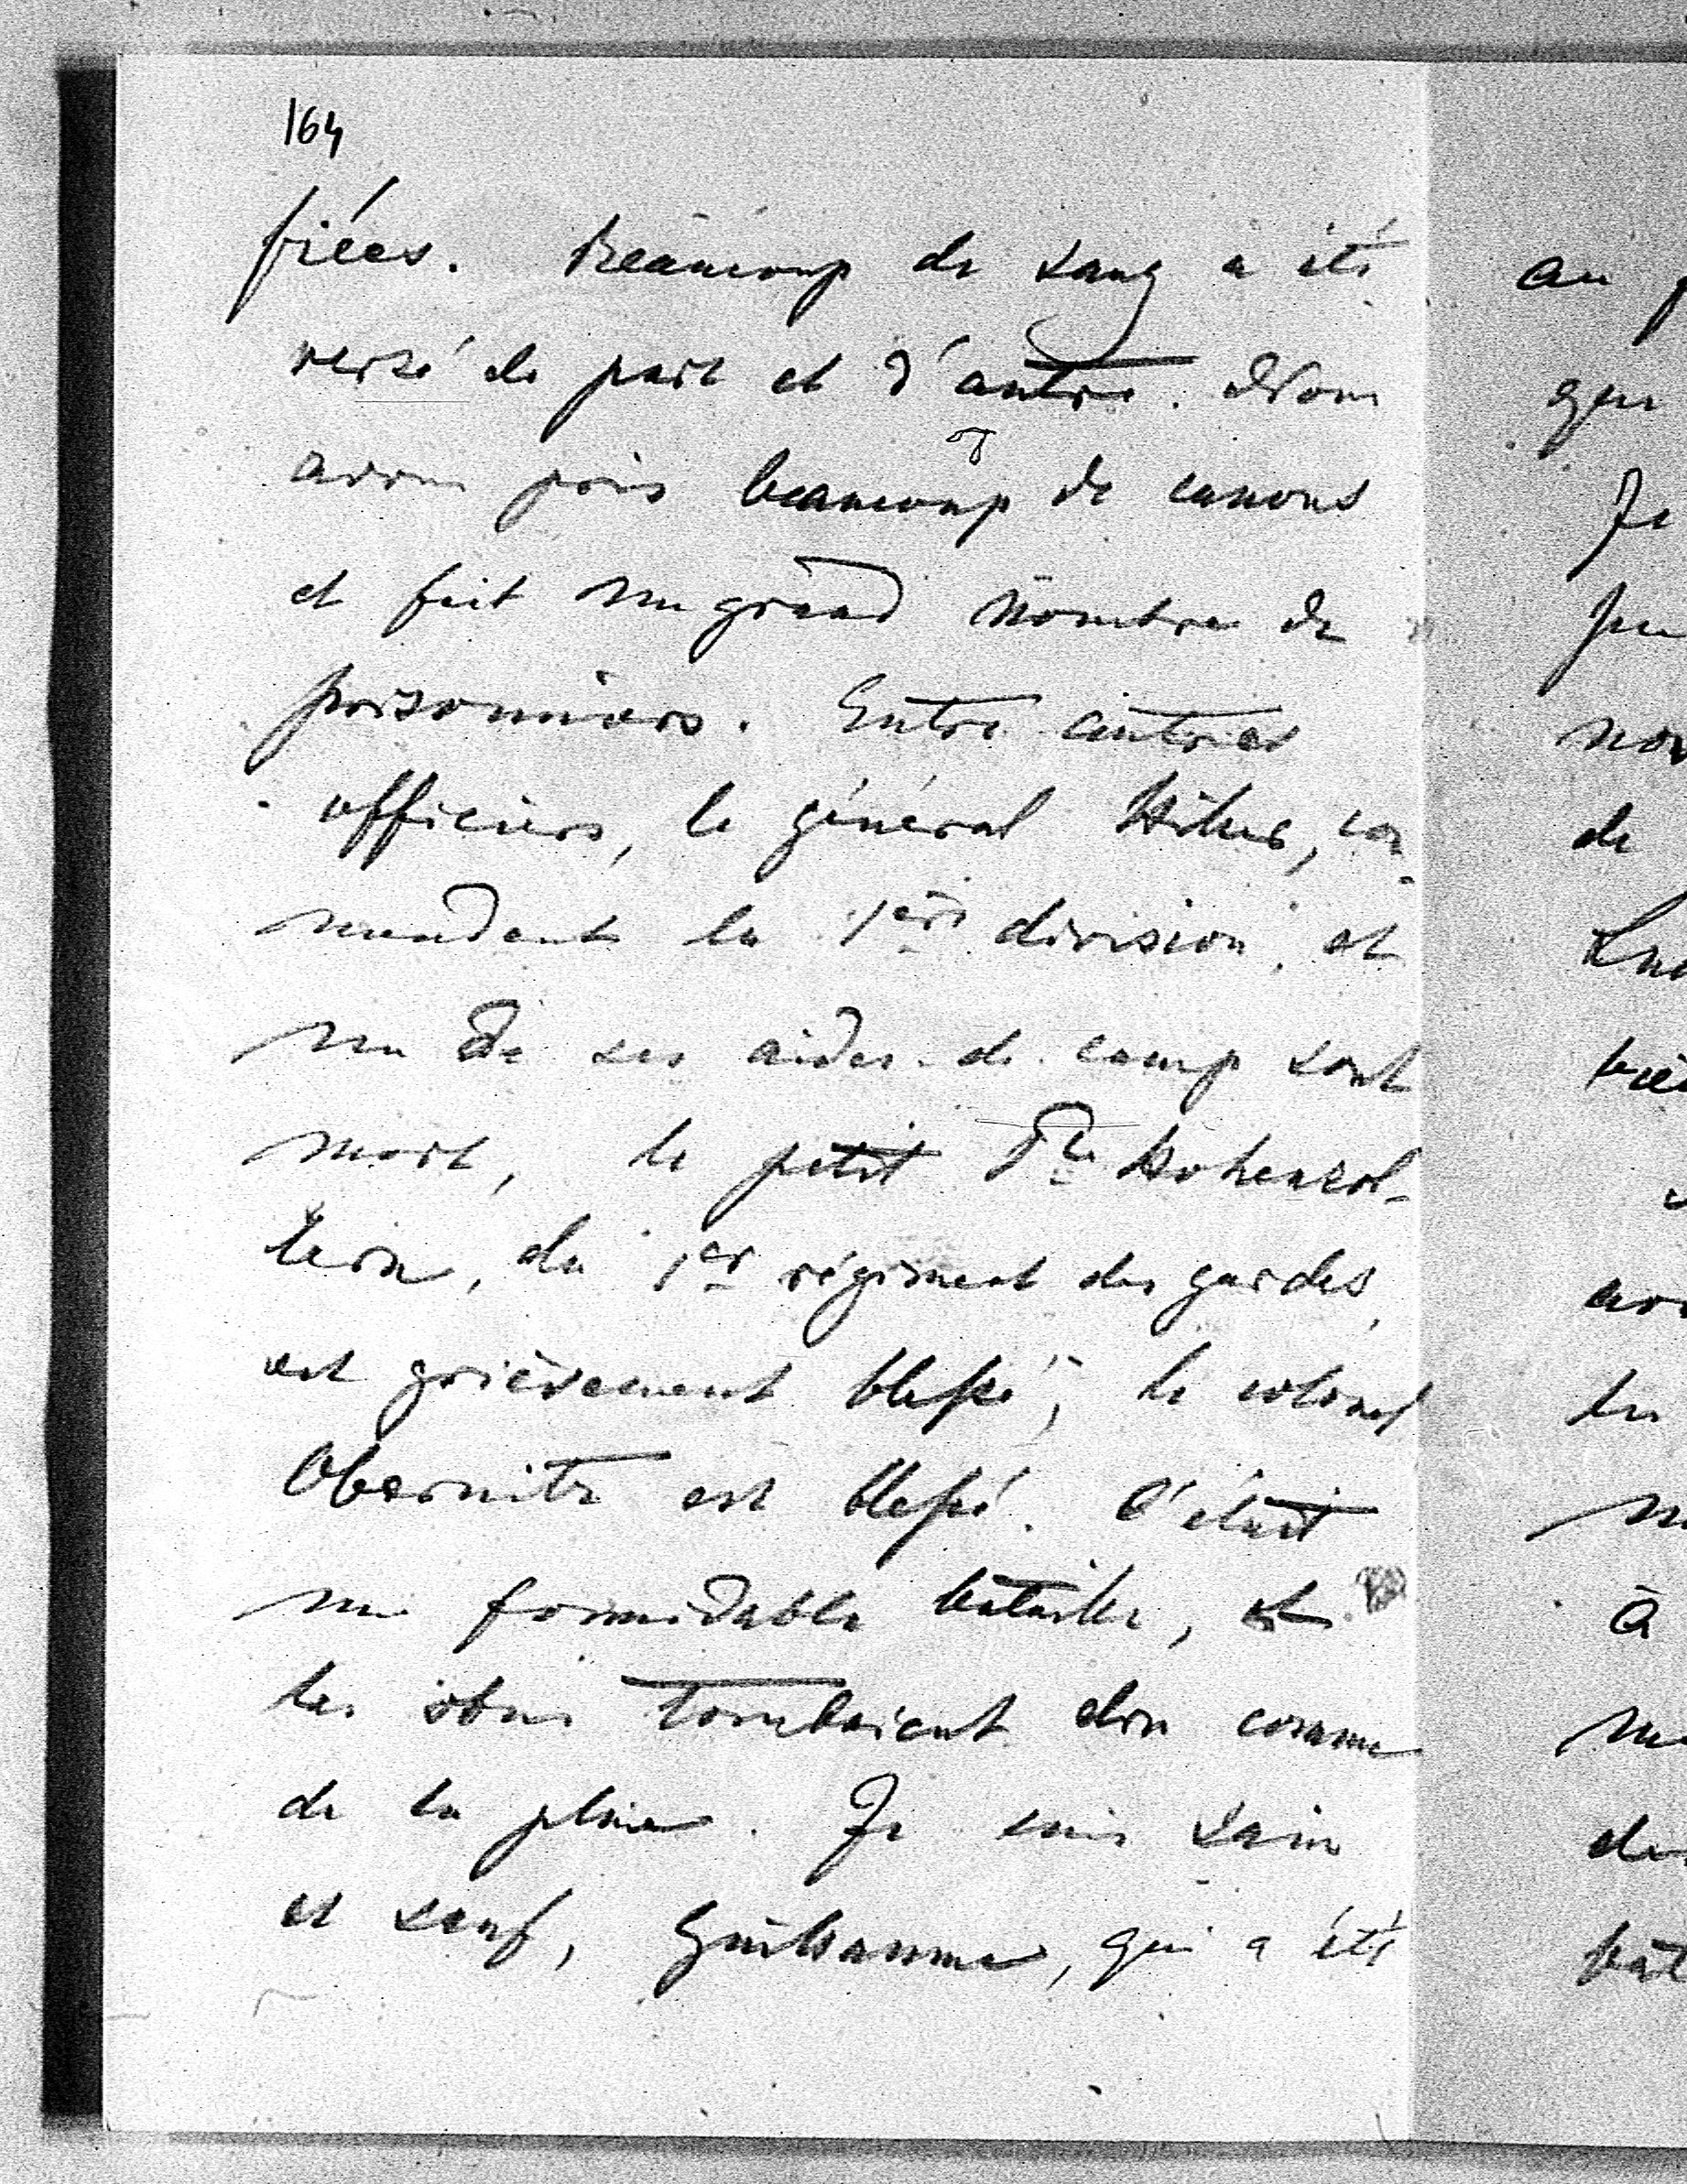 164
fiées. Beaucoup de sang a été
versé de part et d'autre. Nous
avons pris beaucoup de canons
et fait un grand nombre de
prisonniers. Entre autres
officiers, le général Hiller, com
mandant la 1ère division, et
un de ses aides-de-camp sont
mort, le petit Pce Hohenzol-
lern, du 1er régiment des gardes,
est grièvement blessé; le colonel
Obernitz est blessé. C'était
une formidable bataille, et
les obus tombaient dru comme
de la pluie. Je suis sain
et sauf, Guillaume, qui a été
au
que
Je
de
à